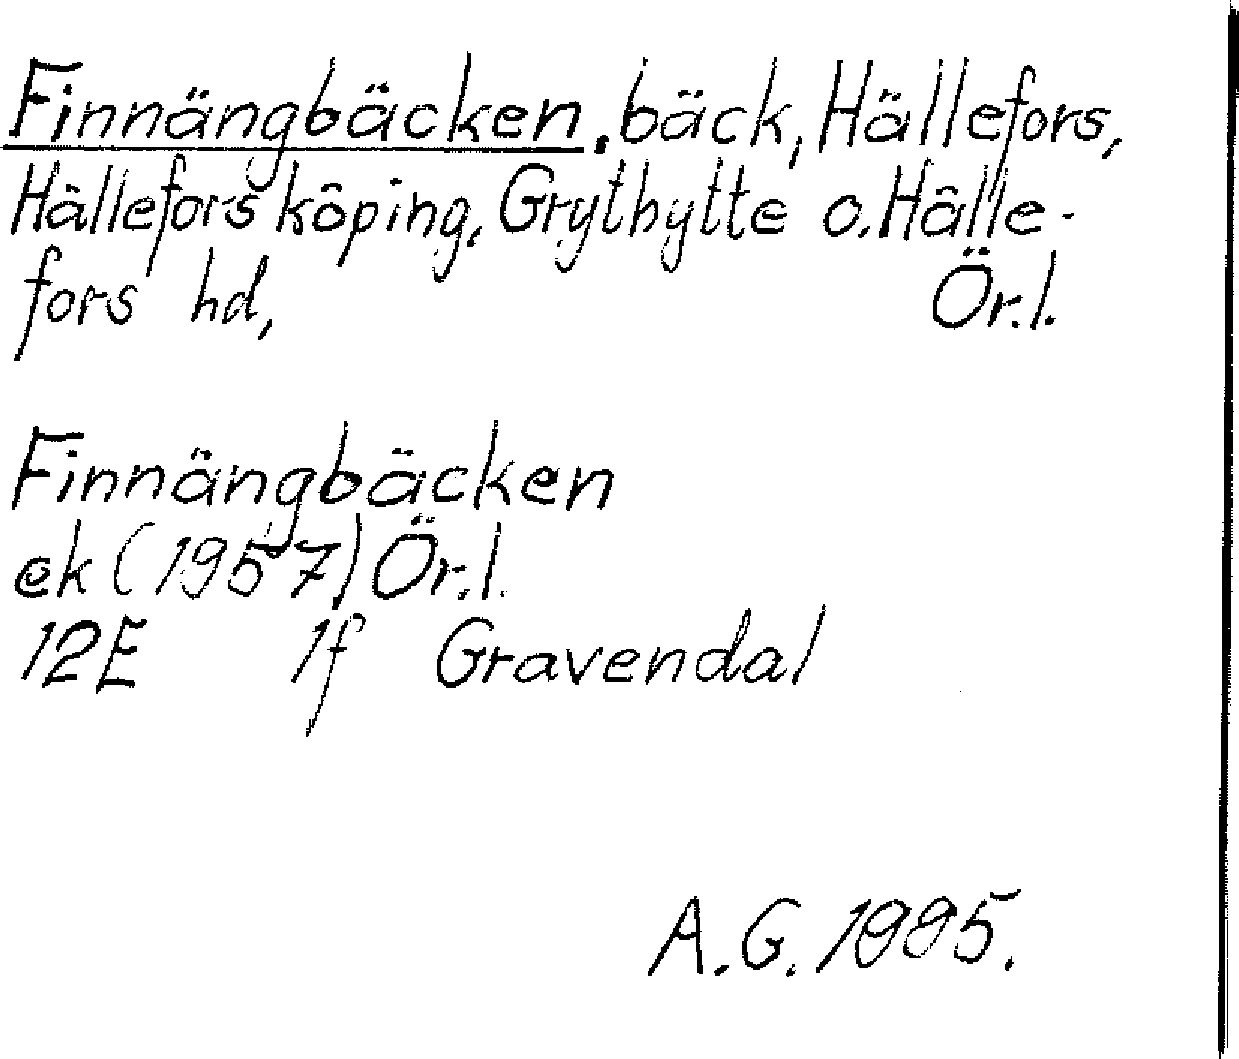 Finnängbäcken, bäck, Hällefors,
Hällefors köping, Grythytte o. Hälle-
fors hd, Ör.l.
Finnängbäcken
ek (1957) Ör.l.
12E 1f Gravendal
A.G. 1995.